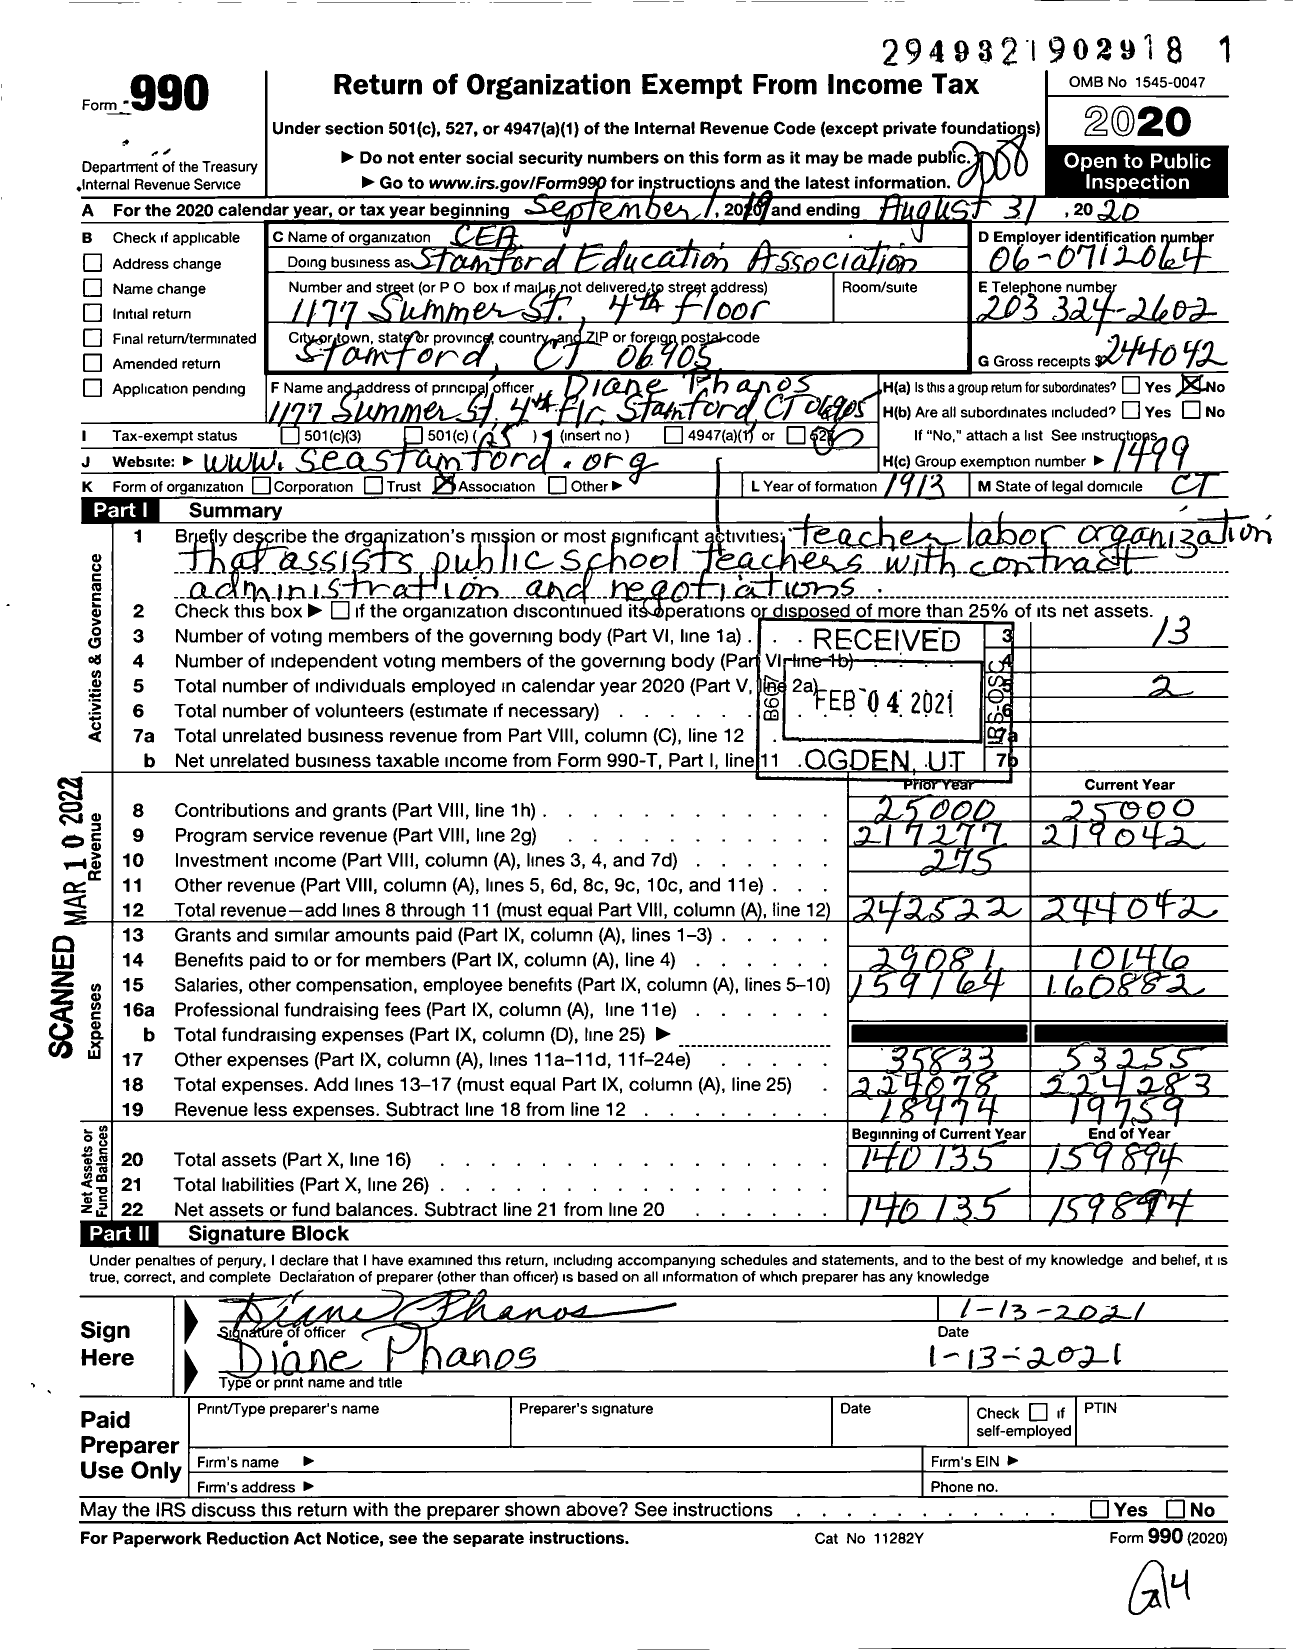 2949321902918 1
Form 990
Return of Organization Exempt From Income Tax
OMB No 1545-0047
Under section 501(c), 527, or 4947(a)(1) of the Internal Revenue Code (except private foundations)
2020
Department of the Treasury
Internal Revenue Service
▶ Do not enter social security numbers on this form as it may be made public.
▶ Go to www.irs.gov/Form990 for instructions and the latest information.
Open to Public Inspection
A For the 2020 calendar year, or tax year beginning September 1, 2019 and ending August 31, 2020
B Check if applicable
Address change
Name change
Initial return
Final return/terminated
Amended return
Application pending
C Name of organization CEA
Doing business as Stamford Education Association
Number and street (or P O box if mail is not delivered to street address) Room/suite
1177 Summer St., 4th Floor
City or town, state or province, country, and ZIP or foreign postal code
Stamford, CT 06905
D Employer identification number
06-0712064
E Telephone number
203 324-2602
G Gross receipts $ 244042
F Name and address of principal officer Diane Phanos
1177 Summer St. 4th Flr. Stamford, CT 06905
H(a) Is this a group return for subordinates? Yes No
H(b) Are all subordinates included? Yes No
If "No," attach a list See instructions
H(c) Group exemption number ▶ 1499
I Tax-exempt status 501(c)(3) 501(c) ( ) (insert no) 4947(a)(1) or
J Website: ▶ www.seastamford.org
K Form of organization Corporation Trust Association Other ▶
L Year of formation 1913
M State of legal domicile CT
Part I Summary
Activities & Governance
1 Briefly describe the organization's mission or most significant activities: teacher labor organization
that assists public school teachers with contract
administration and negotiations.
2 Check this box ▶ if the organization discontinued its operations or disposed of more than 25% of its net assets.
3 Number of voting members of the governing body (Part VI, line 1a) 3 13
4 Number of independent voting members of the governing body (Part VI, line 1b) 4
5 Total number of individuals employed in calendar year 2020 (Part V, line 2a) 5 2
6 Total number of volunteers (estimate if necessary) 6
7a Total unrelated business revenue from Part VIII, column (C), line 12 7a
b Net unrelated business taxable income from Form 990-T, Part I, line 11 7b
RECEIVED
B607
FEB 04 2021
IRS-OSC
OGDEN, UT
SCANNED MAR 10 2022
Prior Year Current Year
Revenue
8 Contributions and grants (Part VIII, line 1h) 25000 25000
9 Program service revenue (Part VIII, line 2g) 217277 219042
10 Investment income (Part VIII, column (A), lines 3, 4, and 7d) 275
11 Other revenue (Part VIII, column (A), lines 5, 6d, 8c, 9c, 10c, and 11e)
12 Total revenue—add lines 8 through 11 (must equal Part VIII, column (A), line 12) 242522 244042
Expenses
13 Grants and similar amounts paid (Part IX, column (A), lines 1–3)
14 Benefits paid to or for members (Part IX, column (A), line 4) 29081 10146
15 Salaries, other compensation, employee benefits (Part IX, column (A), lines 5–10) 159164 160882
16a Professional fundraising fees (Part IX, column (A), line 11e)
b Total fundraising expenses (Part IX, column (D), line 25) ▶
17 Other expenses (Part IX, column (A), lines 11a–11d, 11f–24e) 35833 53255
18 Total expenses. Add lines 13–17 (must equal Part IX, column (A), line 25) 224078 224283
19 Revenue less expenses. Subtract line 18 from line 12 18474 19759
Net Assets or Fund Balances
Beginning of Current Year End of Year
20 Total assets (Part X, line 16) 140135 159894
21 Total liabilities (Part X, line 26)
22 Net assets or fund balances. Subtract line 21 from line 20 140135 159894
Part II Signature Block
Under penalties of perjury, I declare that I have examined this return, including accompanying schedules and statements, and to the best of my knowledge and belief, it is
true, correct, and complete Declaration of preparer (other than officer) is based on all information of which preparer has any knowledge
Sign Here
Diane Phanos 1-13-2021
Signature of officer Date
Diane Phanos 1-13-2021
Type or print name and title
Paid Preparer Use Only
Print/Type preparer's name Preparer's signature Date Check if self-employed PTIN
Firm's name ▶ Firm's EIN ▶
Firm's address ▶ Phone no.
May the IRS discuss this return with the preparer shown above? See instructions Yes No
For Paperwork Reduction Act Notice, see the separate instructions. Cat No 11282Y Form 990 (2020)